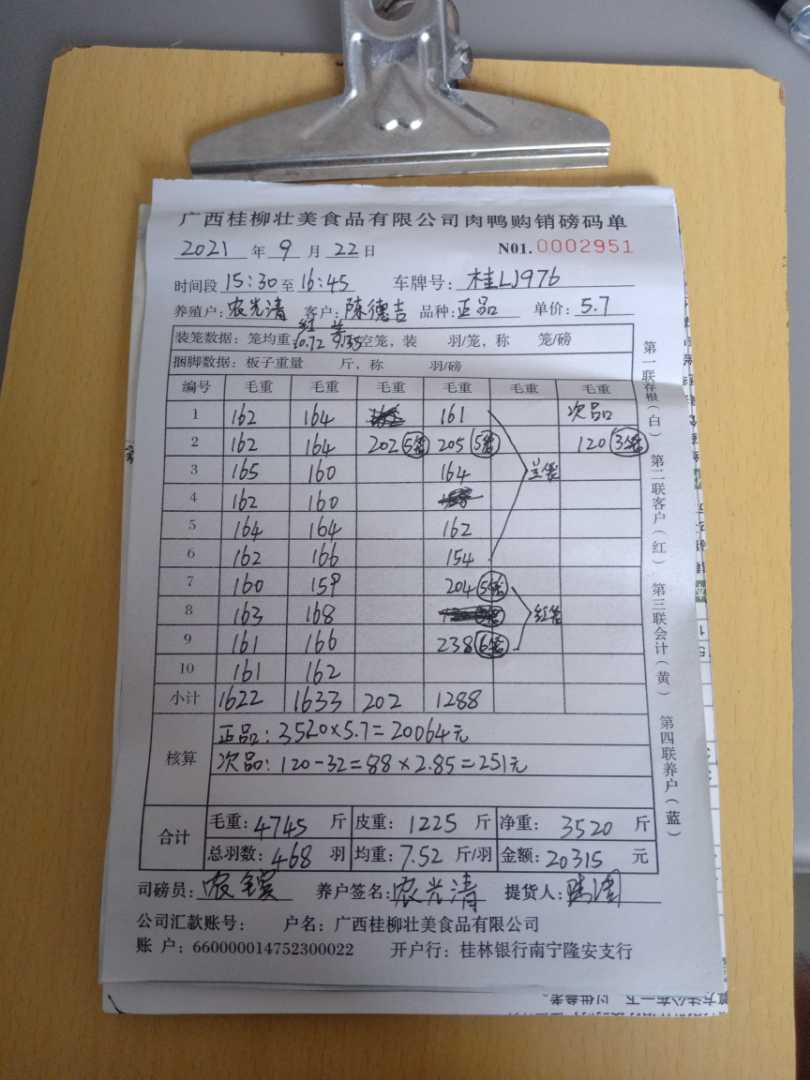 广西桂柳壮美食品有限公司肉鸭购销磅码单
2021 年 9 月 22 日 N01. 0002951
时间段 15:30 至 16:45 车牌号: 桂LJ976
养殖户: 农光清 客户: 陈德吉 品种: 正品 单价: 5.7
装笼数据: 笼均重 红10.72 9.35 空笼, 装 羽/笼, 称 笼/磅
捆脚数据: 板子重量 斤, 称 羽/磅
编号 毛重 毛重 毛重 毛重 毛重 毛重
1 162 164 161 次品
2 162 164 202 5笼 205 5笼 120 3笼
3 165 160 164
4 162 160
5 164 164 162
6 162 166 154
7 160 159 204 5笼
8 163 168 红笼
9 161 166 238 6笼
10 161 162
小计 1622 1633 202 1288
核算
正品: 3520×5.7=20064元
次品: 120-32=88×2.85=251元
合计
毛重: 4745 斤 皮重: 1225 斤 净重: 3520 斤
总羽数: 468 羽 均重: 7.52 斤/羽 金额: 20315 元
司磅员: 养户签名: 农光清 提货人:
公司汇款账号: 户名: 广西桂柳壮美食品有限公司
账 户: 660000014752300022 开户行: 桂林银行南宁隆安支行
第一联存根(白) 第二联客户(红) 第三联会计(黄) 第四联养户(蓝)